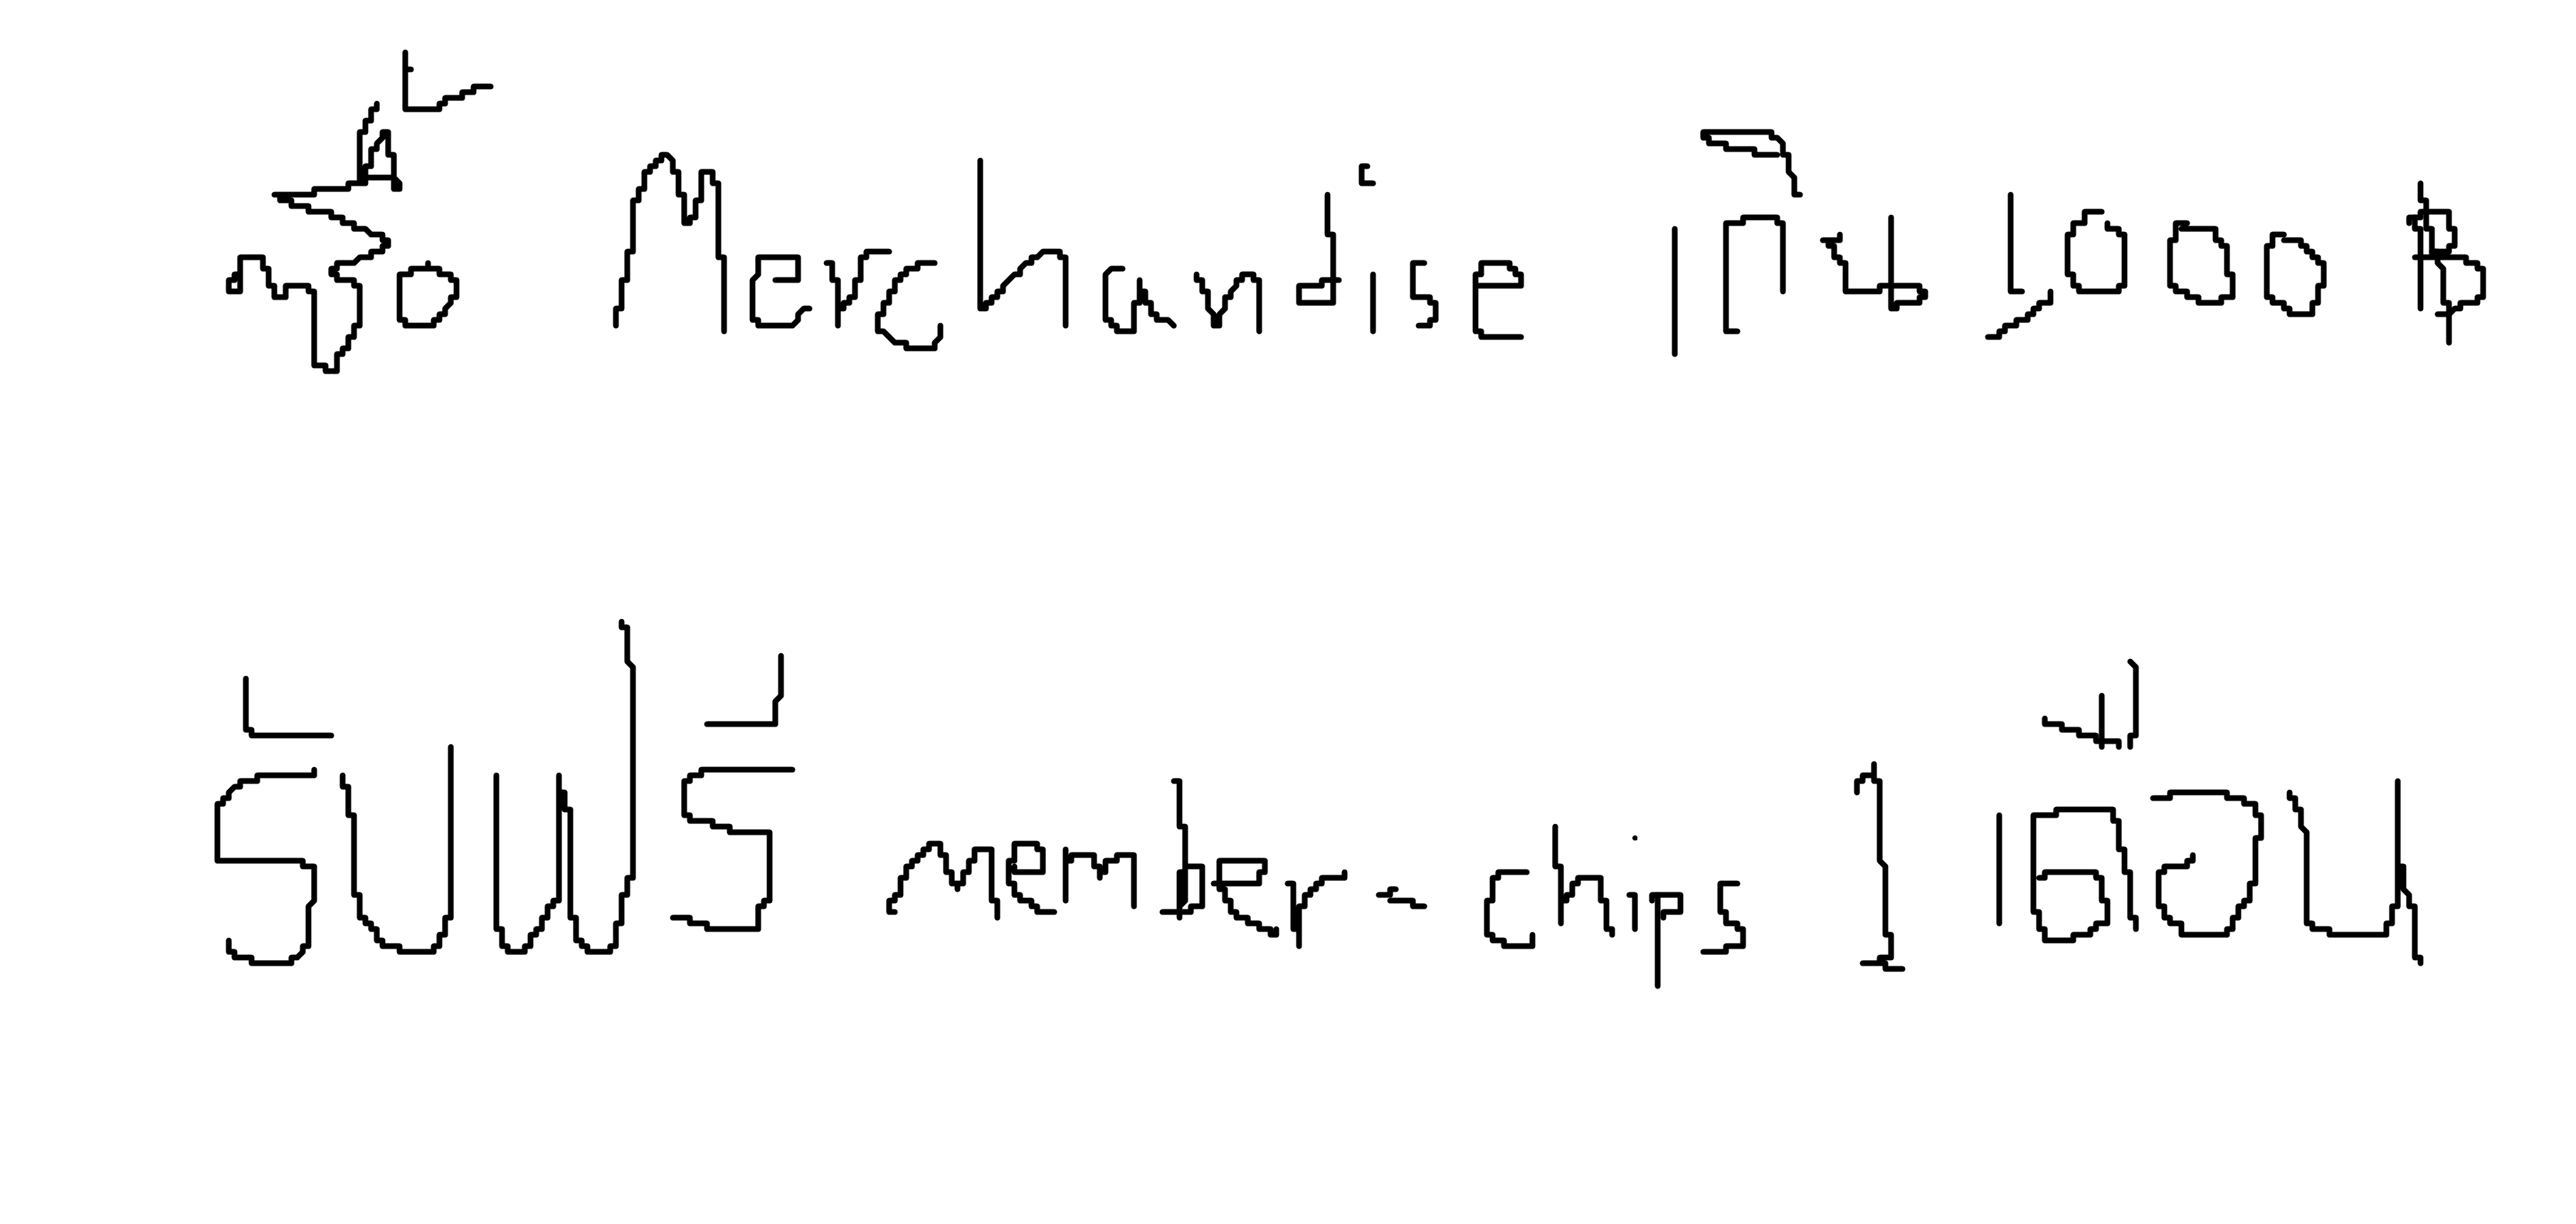 ซื้อ Merchandise เกิน 1,000 ฿
รับฟรี member-chips 1 เดือน